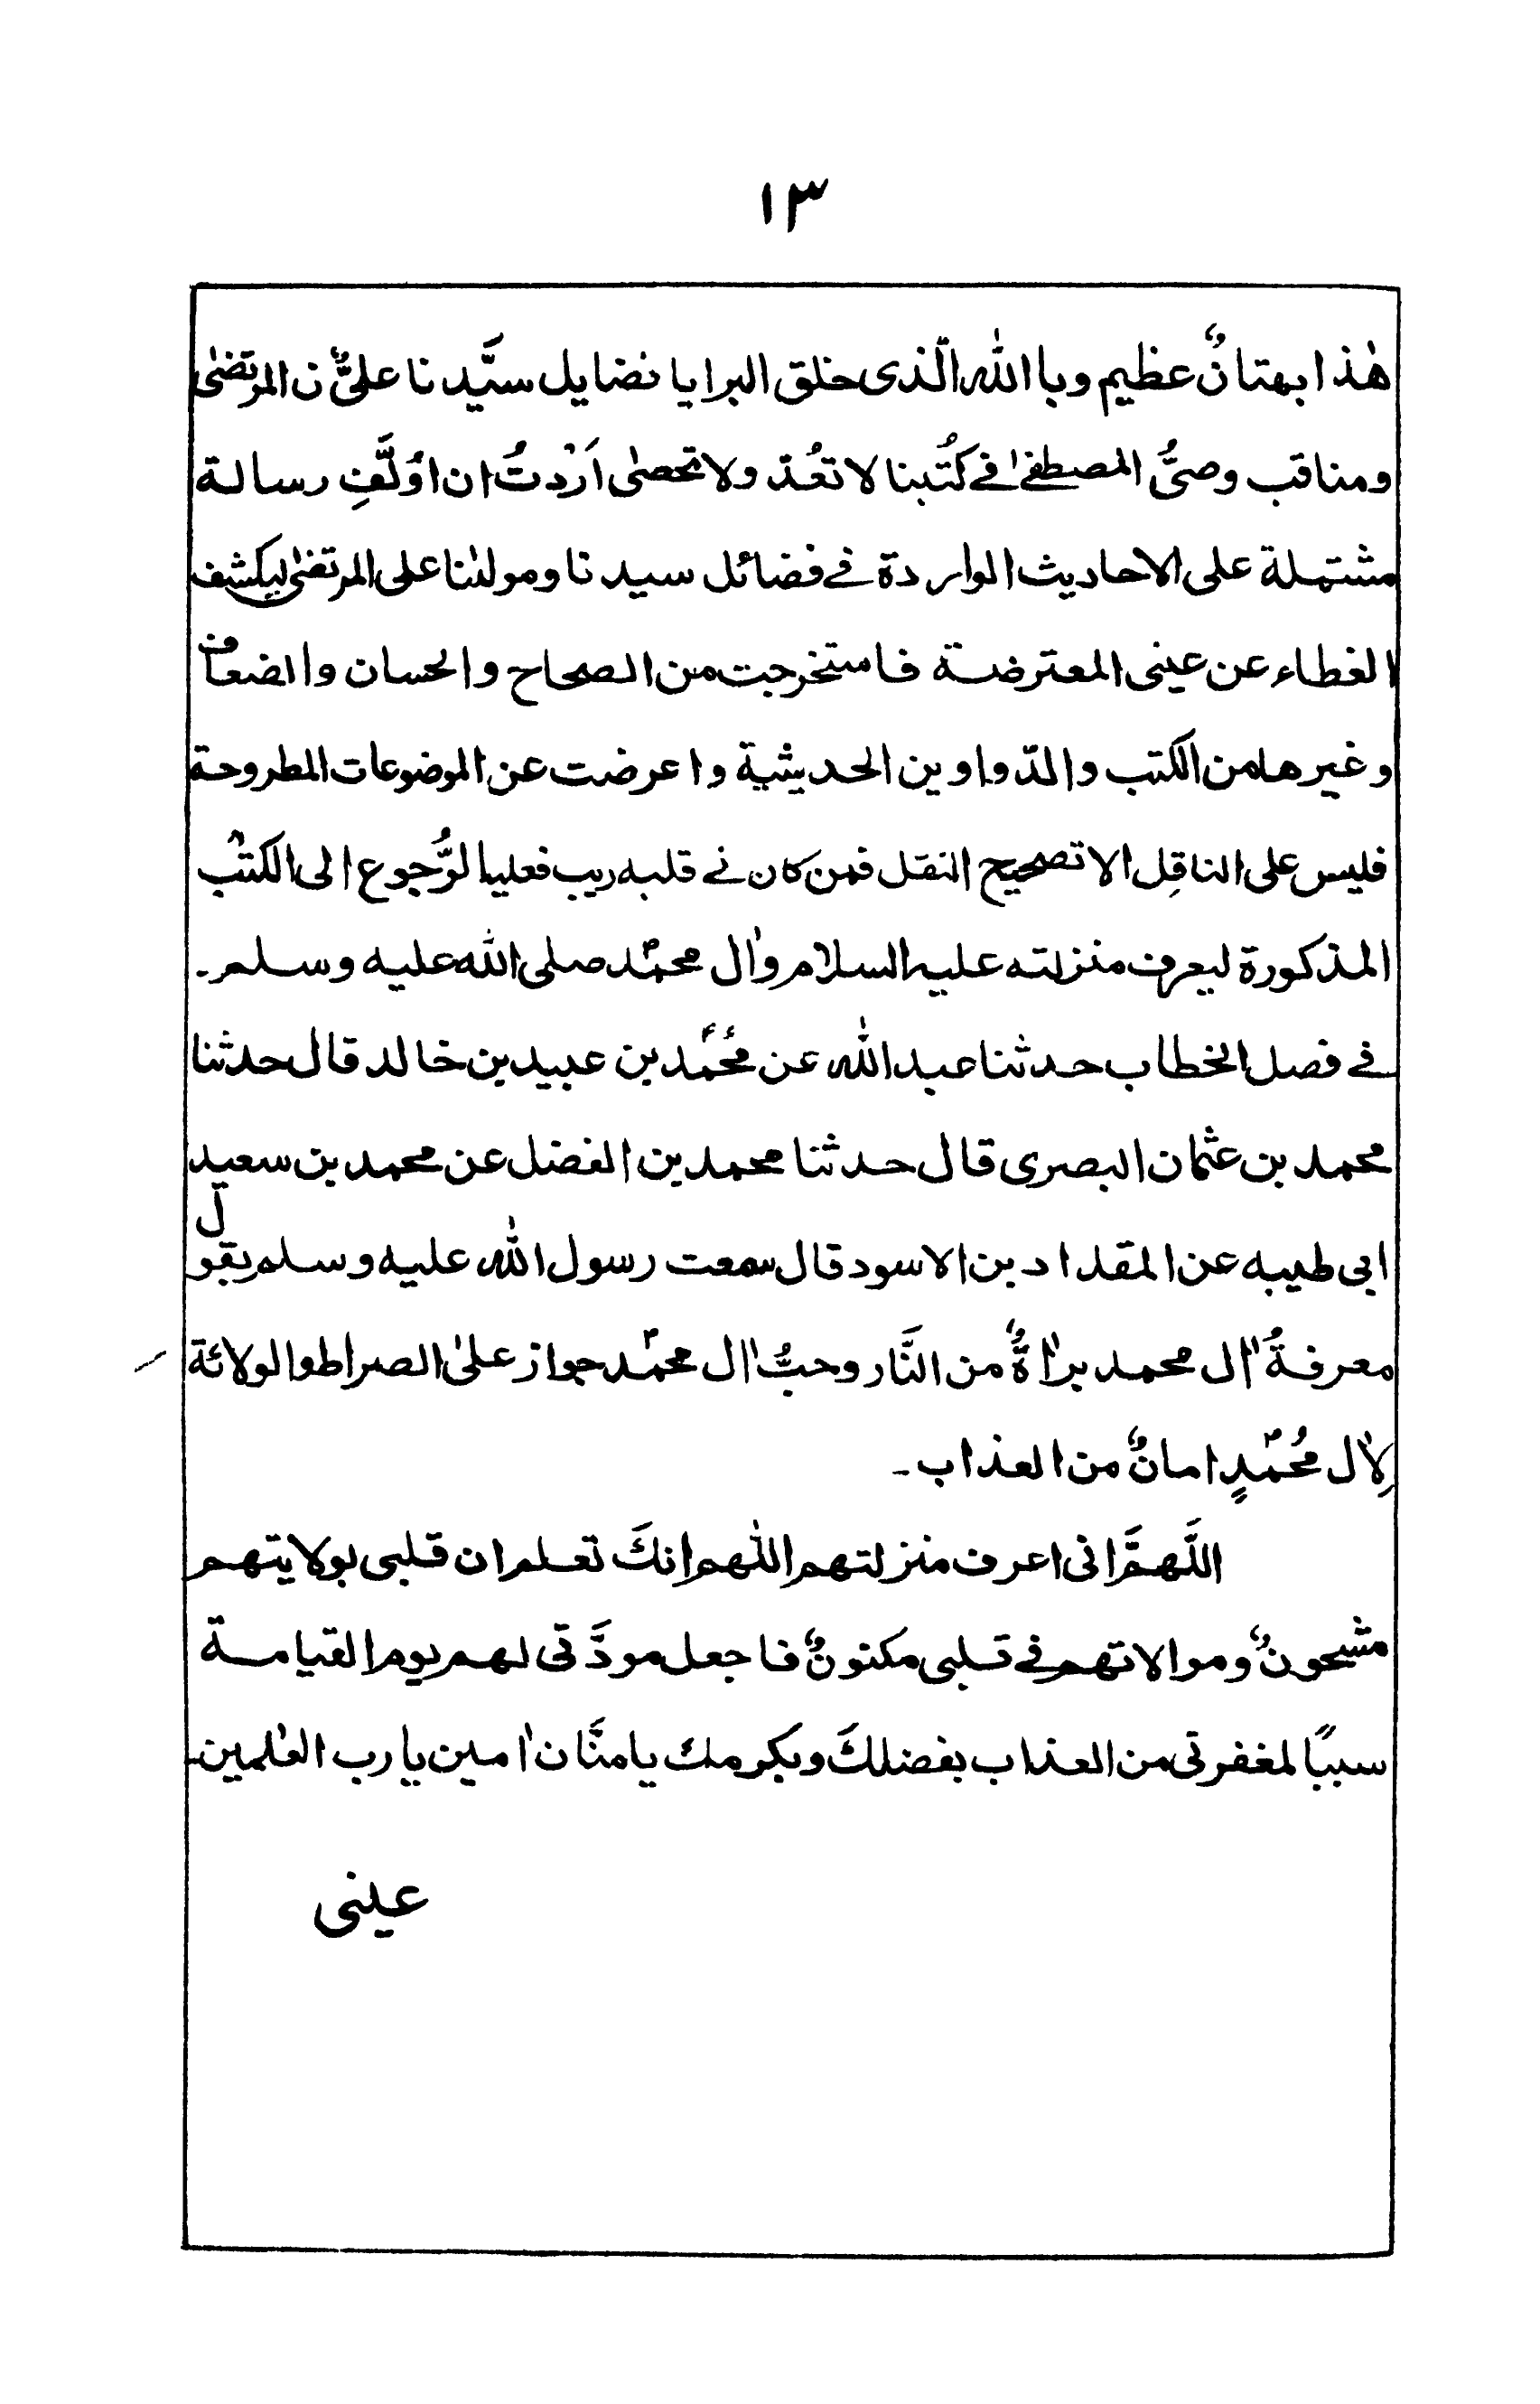 ١٣
هٰذا بهتانٌ عظيم وباالله الّذى خلق البرايا فضايل سيَّدنا علىٌّ ن المرتضىٰ
ومناقب وصىُّ المصطفىٰ فے كُتبنا لا تعُدّ ولا تحصىٰ اَرَدْتُ ان اؤلَّفِ رسالة
مشتملة على الاحاديث الواردة فے فضائل سيدنا ومولٰنا على المرتضىٰ ليكشف
الغطاء عن عينى المعترضة فاستخرجت من الصحاح والحسان والضعاف
وغيرها من الكتب والدّواوين الحديثية واعرضت عن الموضوعات المطروحة
فليس على الناقِل الا تصحيح النقل فمن كان فے قلبه ريب فعليه الرُّجوع الى الكتب
المذكورة ليعرف منزلته عليه السلام واٰل محمدؐ صلى الله عليه وسلم۔
فے فصل الخطاب حدثنا عبد الله عن مُحمَّد بن عبيد بن خالد قال حدثنا
محمد بن عثمان البصرى قال حدثنا محمد بن الفضل عن محمد بن سعيد
ابى طيبه عن المقداد بن الاسود قال سمعت رسول الله عليه وسلم يقول
معرفةُ اٰل محمد براٰةٌ من النَّار وحبُّ اٰل محمدؐ جواز علىٰ الصراط والولائة
لِاٰل مُحمّدٍ امانٌ من العذاب۔
اللَّهمَّ انى اعرف منزلتهم اللٰهم انكَ تعلم ان قلبى بولايتهم
مشحونٌ وموالاتهم فے قلبى مكنونٌ فاجعل مودَّتى لهم يوم القيامة
سببًا لمغفرتى من العذاب بفضلكَ وبكرمك يا منَّان اٰمين يا رب العٰلمين۔
عينى